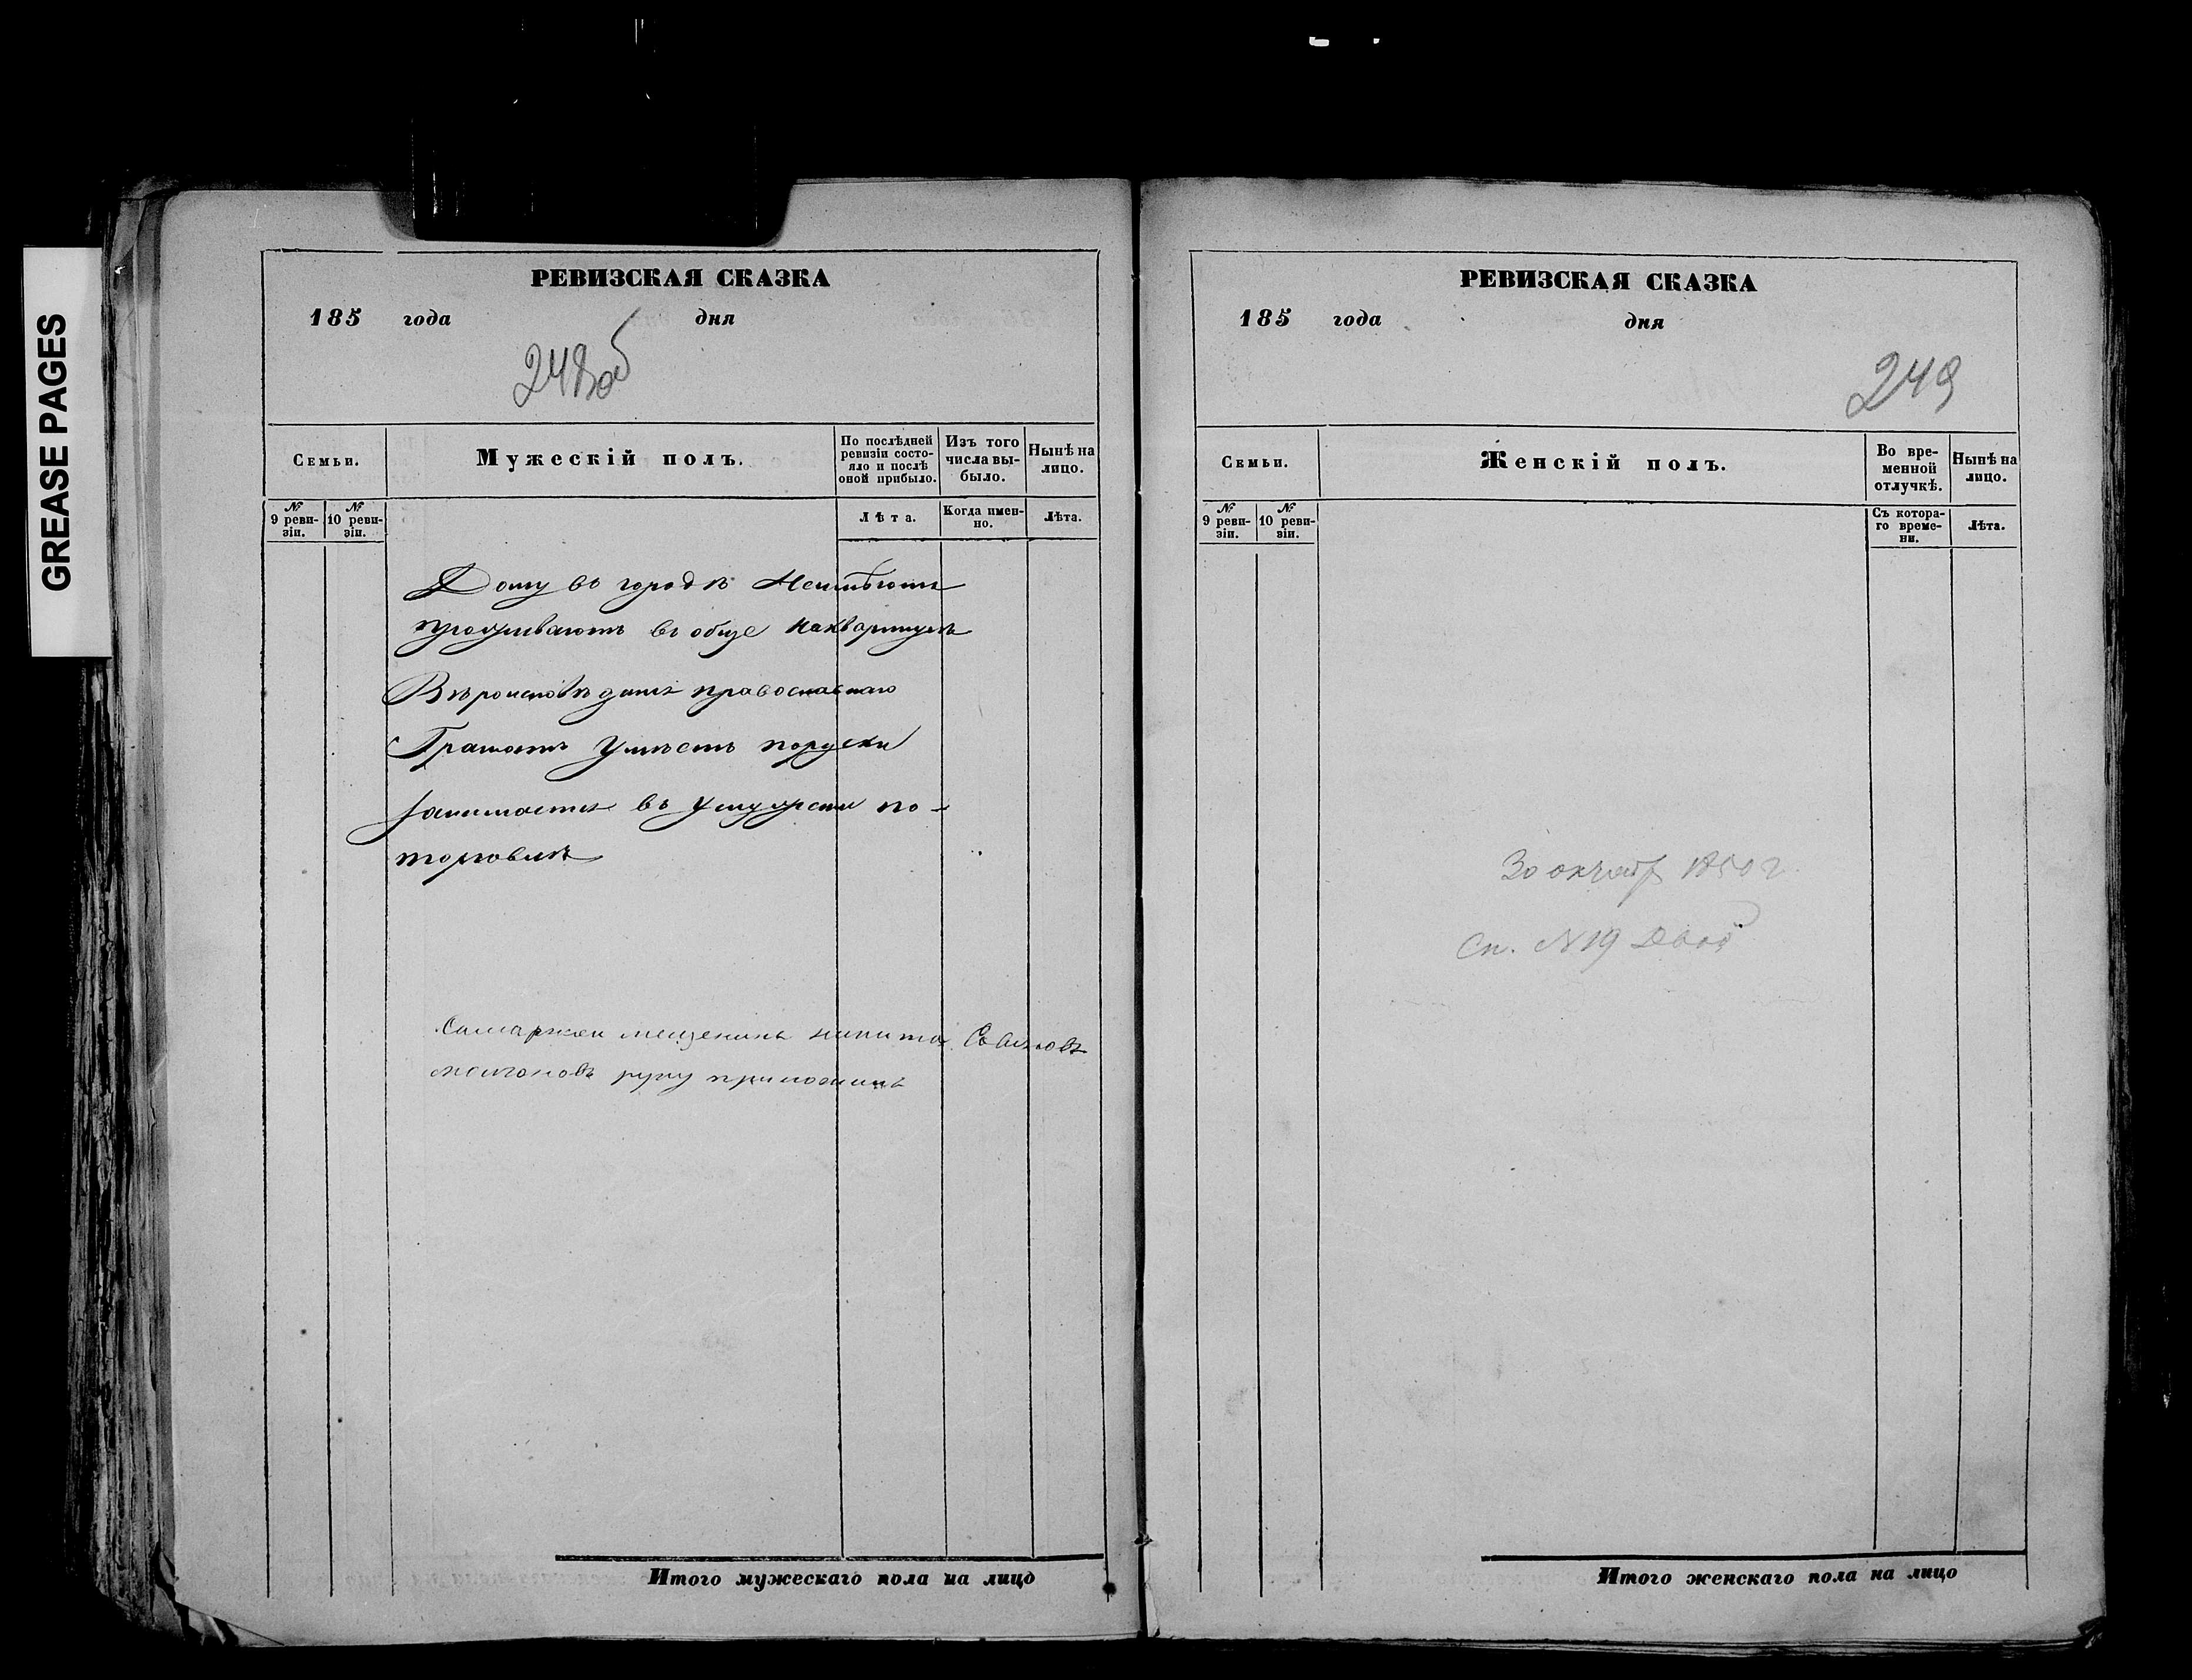 GREASE PAGES
РЕВИЗСКАЯ СКАЗКА
185 года дня
248об
Семьи.
Мужескій полъ.
По послѣдней
ревизіи состо-
яло и послѣ
оной прибыло.
Изъ того
числа вы-
было.
Нынѣ на
лицо.
№
9 реви-
зіи.
№
10 реви-
зіи.
Лѣта.
Когда имен-
но.
Лѣта.
Дому въ городѣ Неимѣютъ
проживаютъ вобще наквартирѣ
Вѣроисповѣданія православнаго
Грамотѣ Умѣетъ поруски
занимается въ Услужении по
торговлѣ
мещенинъ никита
руку приложилъ
Итого мужескаго пола на лицо
РЕВИЗСКАЯ СКАЗКА
185 года дня
249
Семьи.
Женскій полъ.
Во вре-
менной
отлучкѣ.
Нынѣ на
лицо.
№
9 реви-
зіи.
№
10 реви-
зіи.
Съ котора-
го време-
ни.
Лѣта.
30 октябр 1850 г.
Сп. N 19
Итого женскаго пола на лицо